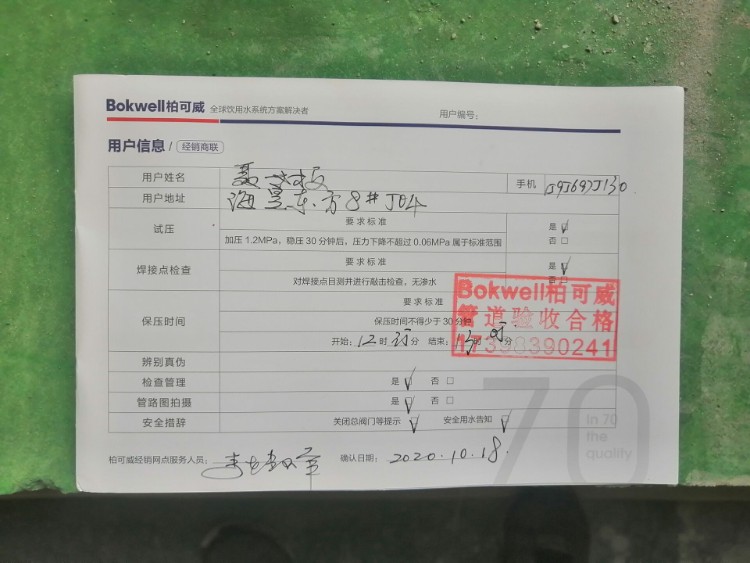 Bokwell柏可威 全球饮用水系统方案解决者 用户编号:
用户信息/ 经销商联
用户姓名 聂 手机
用户地址 海昱东方8#J04
试压 要求标准 是☑
加压1.2MPa,稳压30分钟后,压力下降不超过0.06MPa属于标准范围 否□
焊接点检查 要求标准 是☑
对焊接点目测并进行敲击检查,无渗水
保压时间 要求标准
保压时间不得少于30分钟
开始: 12时 分 结束: 时 分
Bokwell柏可威
管道验收合格
17398390241
辨别真伪
检查管理 是☑ 否□
管路图拍摄 是☑ 否□
安全措辞 关闭总阀门等提示 √ 安全用水告知 √
70
In 70
the
quality
柏可威经销网点服务人员: 确认日期: 2020.10.18.